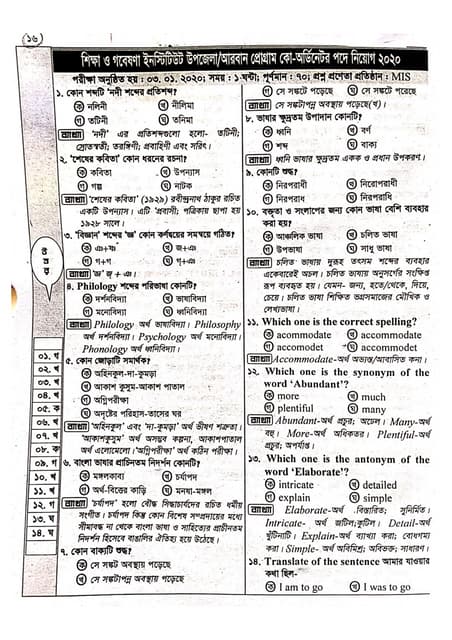 ১৬
শিক্ষা ও গবেষণা ইনস্টিটিউট উপজেলা/আরবান প্রোগ্রাম কো-অর্ডিনেটর পদে নিয়োগ ২০২০
পরীক্ষা অনুষ্ঠিত হয় : ০৩. ০১. ২০২০; সময় : ১ ঘন্টা; পূর্ণমান : ৭০; প্রশ্ন প্রণেতা প্রতিষ্ঠান : MIS
১. কোন শব্দটি 'নদী' শব্দের প্রতিশব্দ?
ক নলিনী খ নীলিমা
গ তটিনী ঘ তনিমা
ব্যাখ্যা 'নদী' এর প্রতিশব্দগুলো হলো- তটিনী;
স্রোতস্বতী; তরঙ্গিণী; প্রবাহিণী এবং সরিৎ।
২. 'শেষের কবিতা' কোন ধরনের রচনা?
ক কবিতা খ উপন্যাস
গ গল্প ঘ নাটক
ব্যাখ্যা 'শেষের কবিতা' (১৯২৯) রবীন্দ্রনাথ ঠাকুর রচিত
একটি উপন্যাস। এটি 'প্রবাসী' পত্রিকায় ছাপা হয়
১৯২৮ সালে।
৩. 'বিজ্ঞান' শব্দের 'জ্ঞ' কোন বর্ণদ্বয়ের সমন্বয়ে গঠিত?
ক ঞ+ষ খ জ+ঞ
গ গ+ঞ ঘ গ+গ
ব্যাখ্যা 'জ্ঞ' জ্ + ঞ।
৪. Philology শব্দের পরিভাষা কোনটি?
ক দর্শনবিদ্যা খ ভাষাবিদ্যা
গ মনোবিদ্যা ঘ ধ্বনিবিদ্যা
ব্যাখ্যা Philology অর্থ ভাষাবিদ্যা। Philosophy
অর্থ দর্শনবিদ্যা। Psychology অর্থ মনোবিদ্যা।
Phonology অর্থ ধ্বনিবিদ্যা।
৫. কোন জোড়াটি সমার্থক?
ক অহিনকুল-দা-কুমড়া
খ আকাশ কুসুম-আকাশ পাতাল
গ অগ্নিপরীক্ষা
ঘ অদৃষ্টের পরিহাস-তাসের ঘর
ব্যাখ্যা 'অহিনকুল' এবং 'দা-কুমড়া' অর্থ ভীষণ শত্রুতা।
'আকাশকুসুম' অর্থ অসম্ভব কল্পনা, আকাশপাতাল
অর্থ এলোমেলো। 'অগ্নিপরীক্ষা' অর্থ কঠিন পরীক্ষা।
৬. বাংলা ভাষার প্রাচীনতম নিদর্শন কোনটি?
ক মঙ্গলকাব্য খ চর্যাপদ
গ অর্থ-বিত্তের কাড়ি ঘ মনষা-মঙ্গল
ব্যাখ্যা 'চর্যাপদ' হলো বৌদ্ধ সিদ্ধাচার্যদের রচিত ধর্মীয়
সংগীত। চর্যাপদ কিন্তু কোন বিশেষ সম্প্রদায়ের মধ্যে
সীমাবদ্ধ না থেকে বাংলা ভাষা ও সাহিত্যের প্রাচীনতম
নিদর্শন হিসেবে বাঙালির ঐতিহ্য হয়ে উঠেছে।
৭. কোন বাক্যটি শুদ্ধ?
ক সে সঙ্কট অবস্থায় পড়েছে
খ সে সঙ্কটাপন্ন অবস্থায় পড়েছে
গ সে সঙ্কটে পড়েছে ঘ সে সঙ্কটে পরেছে
ব্যাখ্যা সে সঙ্কটাপন্ন অবস্থায় পড়েছে(খ)।
৮. ভাষার ক্ষুদ্রতম উপাদান কোনটি?
ক ধ্বনি খ বর্ণ
গ শব্দ ঘ বাক্য
ব্যাখ্যা ধ্বনি ভাষার ক্ষুদ্রতম একক ও প্রধান উপকরণ।
৯. কোনটি শুদ্ধ?
ক নিরপরাধী খ নিরোপরাধী
গ নিরপরাধ ঘ নিরপরাধি
১০. বক্তৃতা ও সংলাপের জন্য কোন ভাষা বেশি ব্যবহার
করা হয়?
ক আঞ্চলিক ভাষা খ চলিত ভাষা
গ উপভাষা ঘ সাধু ভাষা
ব্যাখ্যা চলিত ভাষায় দুরূহ তৎসম শব্দের ব্যবহার
একেবারেই অচল। চলিত ভাষায় অনুসর্গের সংক্ষিপ্ত
রূপ ব্যবহৃত হয়। যেমন- জন্য, হতে/থেকে, দিয়ে,
চেয়ে। চলিত ভাষা শিক্ষিত ভদ্রসমাজের মৌখিক ও
লেখ্যভাষা।
১১. Which one is the correct spelling?
ক accommodate খ accomodate
গ accommodet ঘ accomodate
ব্যাখ্যা Accommodate-অর্থ অভ্যস্ত/আবাসিত করা।
১২. Which one is the synonym of the
word 'Abundant'?
ক more খ much
গ plentiful ঘ many
ব্যাখ্যা Abundant-অর্থ প্রচুর; অঢেল। Many-অর্থ
বহু। More-অর্থ অধিকতর। Plentiful-অর্থ
প্রচুর; অপর্যাপ্ত।
১৩. Which one is the antonym of the
word 'Elaborate'?
ক intricate খ detailed
গ explain ঘ simple
ব্যাখ্যা Elaborate-অর্থ বিস্তারিত; সুনির্মিত।
Intricate- অর্থ জটিল;কুটিল। Detail-অর্থ
খুঁটিনাটি। Explain-অর্থ ব্যাখ্যা করা; বোধগম্য
করা। Simple- অর্থ অবিমিশ্র; অবিভক্ত; সাধারণ।
১৪. Translate of the sentence আমার যাওয়ার
কথা ছিল-
ক I am to go খ I was to go
উত্তর
০১. গ
০২. খ
০৩. খ
০৪. খ
০৫. ক
০৬. খ
০৭. খ
০৮. ক
০৯. গ
১০. খ
১১. ক
১২. গ
১৩. ঘ
১৪. খ